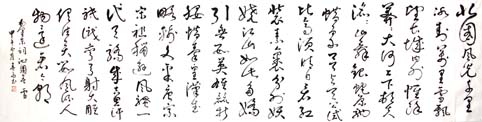 北国风光千里
冰封万里雪飘
望长城内外惟余
莽莽大河上下顿失
滔滔山舞银蛇原驰
蜡象欲与天公试
比高须晴日看红
装素裹分外妖
娆江山如此多娇
引无数英雄竞折
腰惜秦皇汉武
略输文采唐宗
宋祖稍逊风骚一
代天骄成吉思汗
只识弯弓射大雕
俱往矣数风流人
物还看今朝
词沁园春雪
甲午